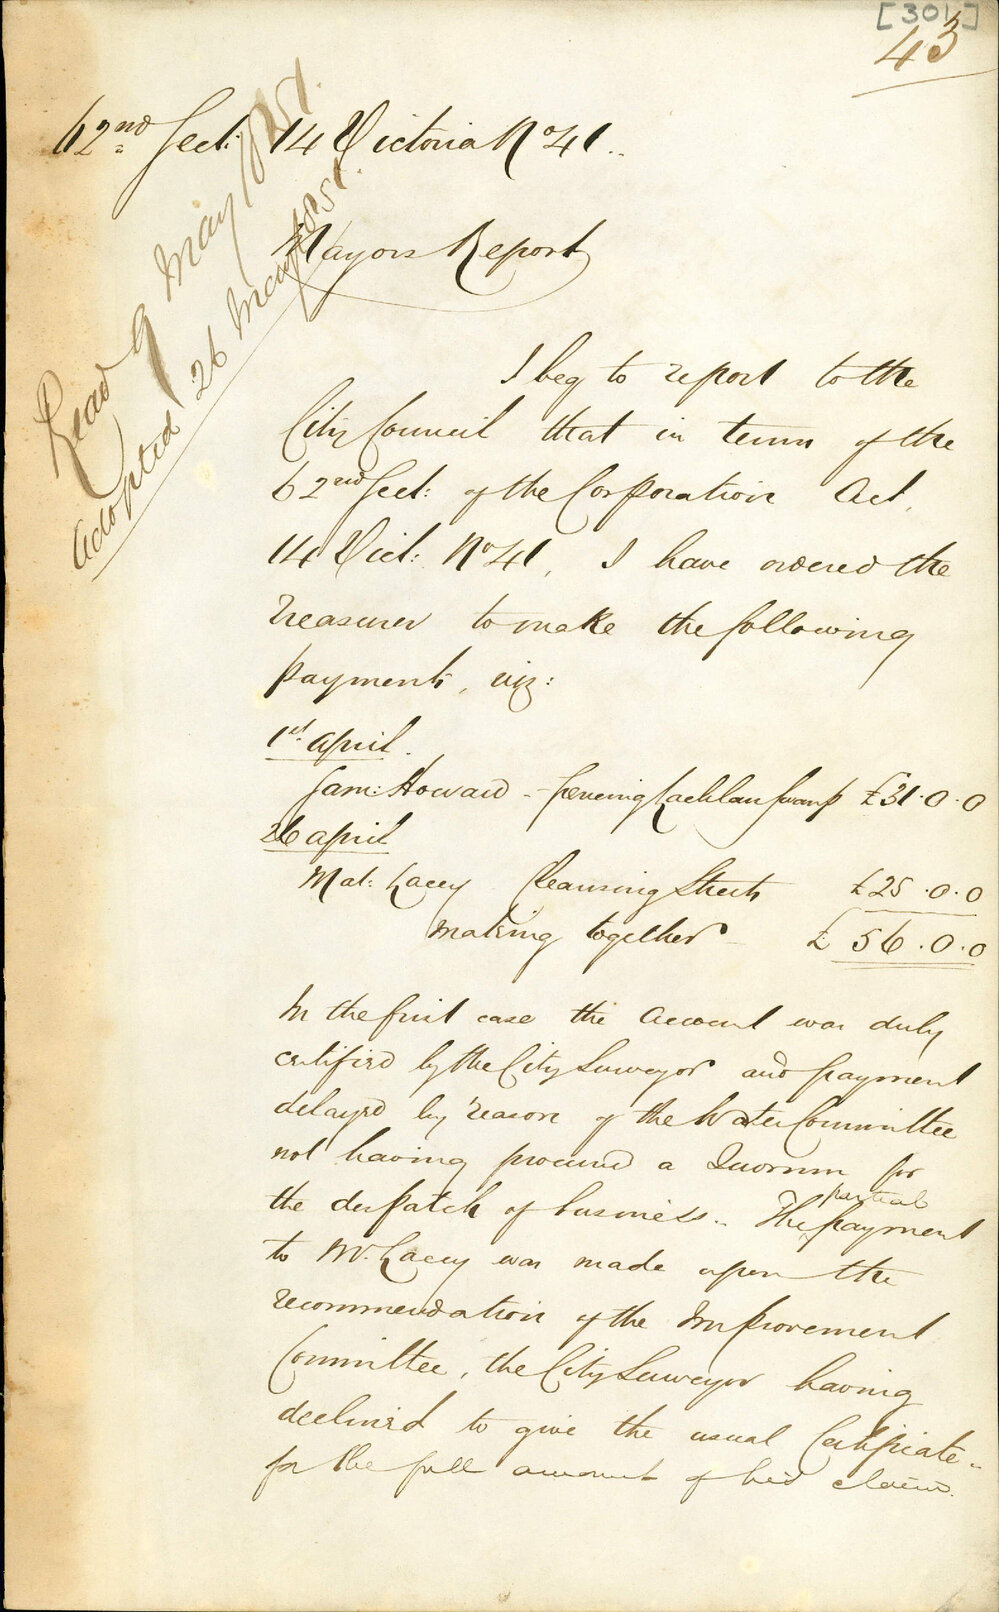 [301]
43
62nd Sect: 14 Victoria No 41..
Read 9 May 1851.
Adopted 26 May 1851.
Mayors Report
I beg to report to the
City Council that in terms of the
62nd Sect: of the Corporation Act,
14 Vict: No 41, I have ordered the
Treasurer to make the following
payments, viz:
1st April.
Jam: Howard - fencing Lachlan Swamp £31.0.0
26 April
Mat: Lacey Cleansing Streets £25.0.0
making together £56.0.0
In the first case the Account was duly
certified by the City Surveyor and payment
delayed by reason of the Water Committee
not having procured a Quorum for
the despatch of business.. The partial payment
to Mr. Lacey was made upon the
recommendation of the Improvement
Committee, the City Surveyor having
declined to give the usual Certificate..
for the full amount of his claim.